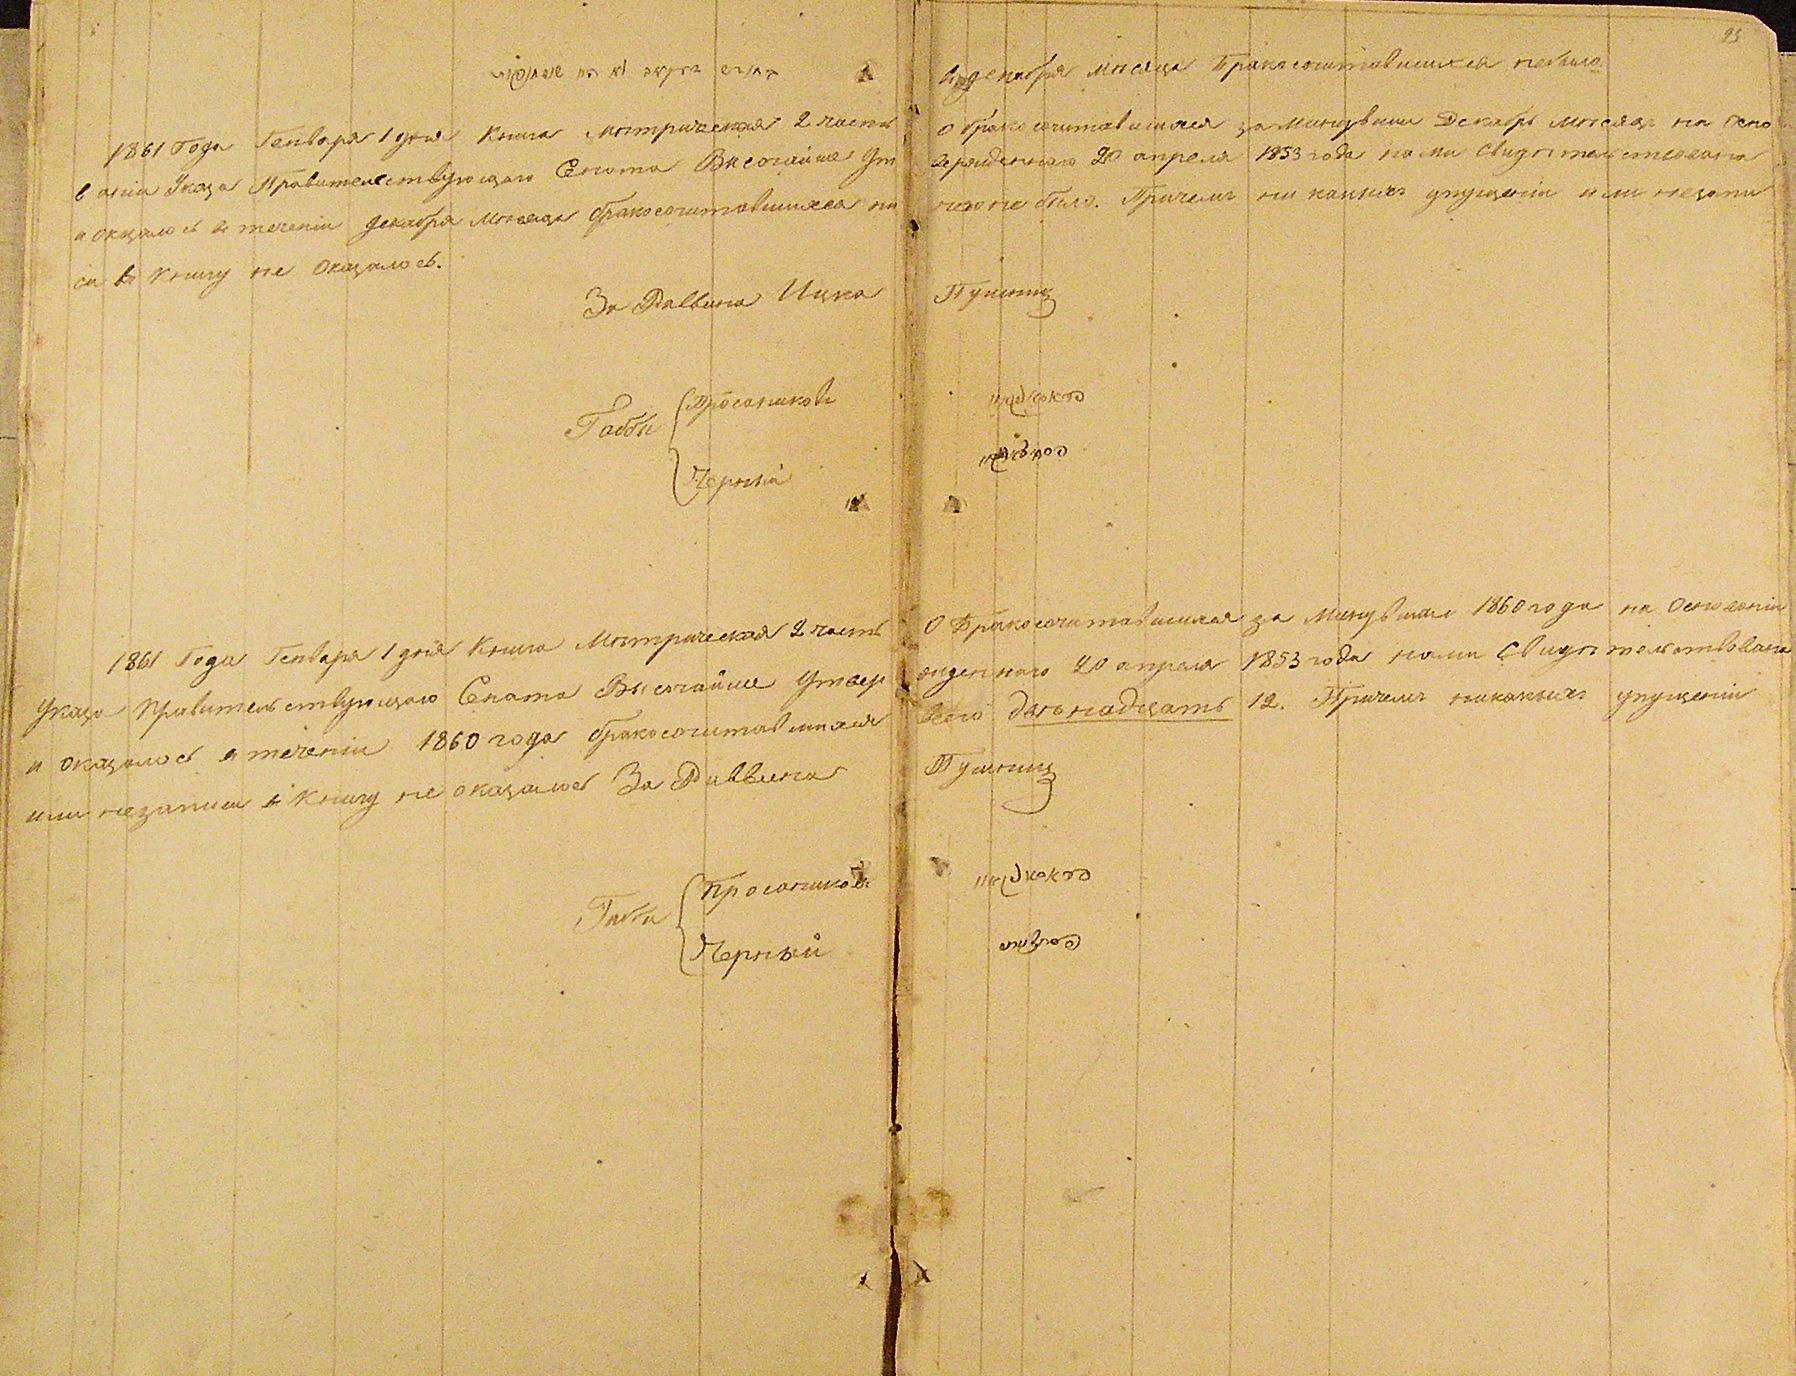 25
въ декабря мѣсяца бракосочитавшихся небыло.
1861 Года Генваря 1 дня Книга Метрическая 2 часть О бракосочитавшихся за минувший Декабрь мѣсяцъ на осно
ваніи Указа Правительствующаго Сената Высочайше Утвержденнаго 20 апреля 1853 года нами Свидѣтельствована
и оказалось въ теченіи декабря мѣсяца бракосочитавшихся никого не было. Причемъ никакихъ упущеній или незапи
си въ Книгу не оказалось.
За Раввина Ицка Пушниц
Габбы Просаников
Черный
1861 Года Генваря 1 дня Книга Метрическая 2 часть О Бракосочитавшихся за Минувший 1860 года на Основаніи
Указа Правительствующаго Сената Высочайше Утвержденнаго 20 апреля 1853 года нами Свидѣтельствована
и оказалось в теченіи 1860 года бракосочитавшихся всего двѣнадцать 12. Причемъ никакихъ упущеній
или незаписи в Книгу не оказалось За Раввина Пушниц
Габбы Просаников
Черный